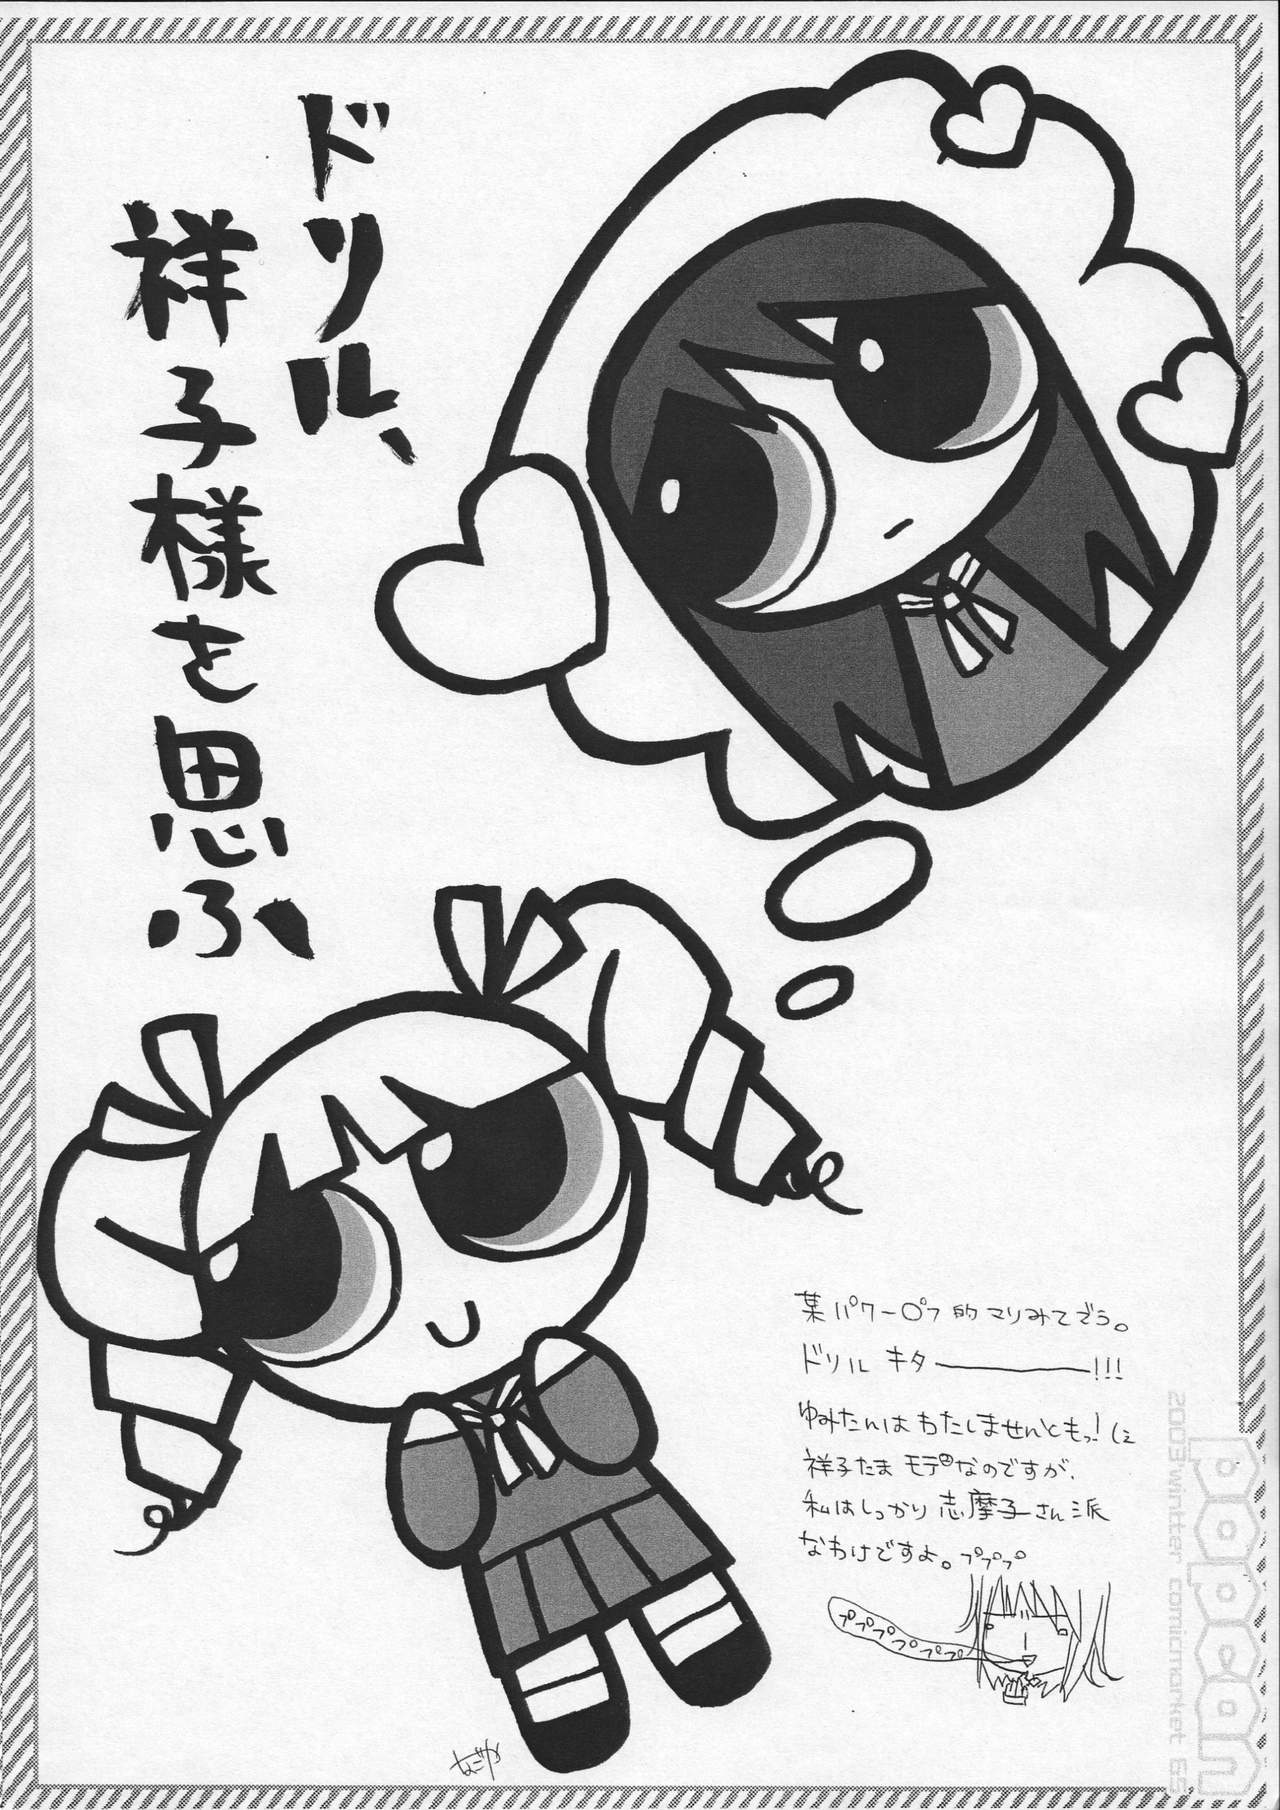 ドリル、
祥子様を思ふ
某パワーpフ的マリみてでう。
ドリル キター————!!!
ゆみたんはわたしませんともっ!(こ
祥子たまモテモテなのですが、
私はしっかり志摩子さん派
なわけですよ。ププププ
プププププププ
なごやか
popcan
2003 wintter comicmarket 65